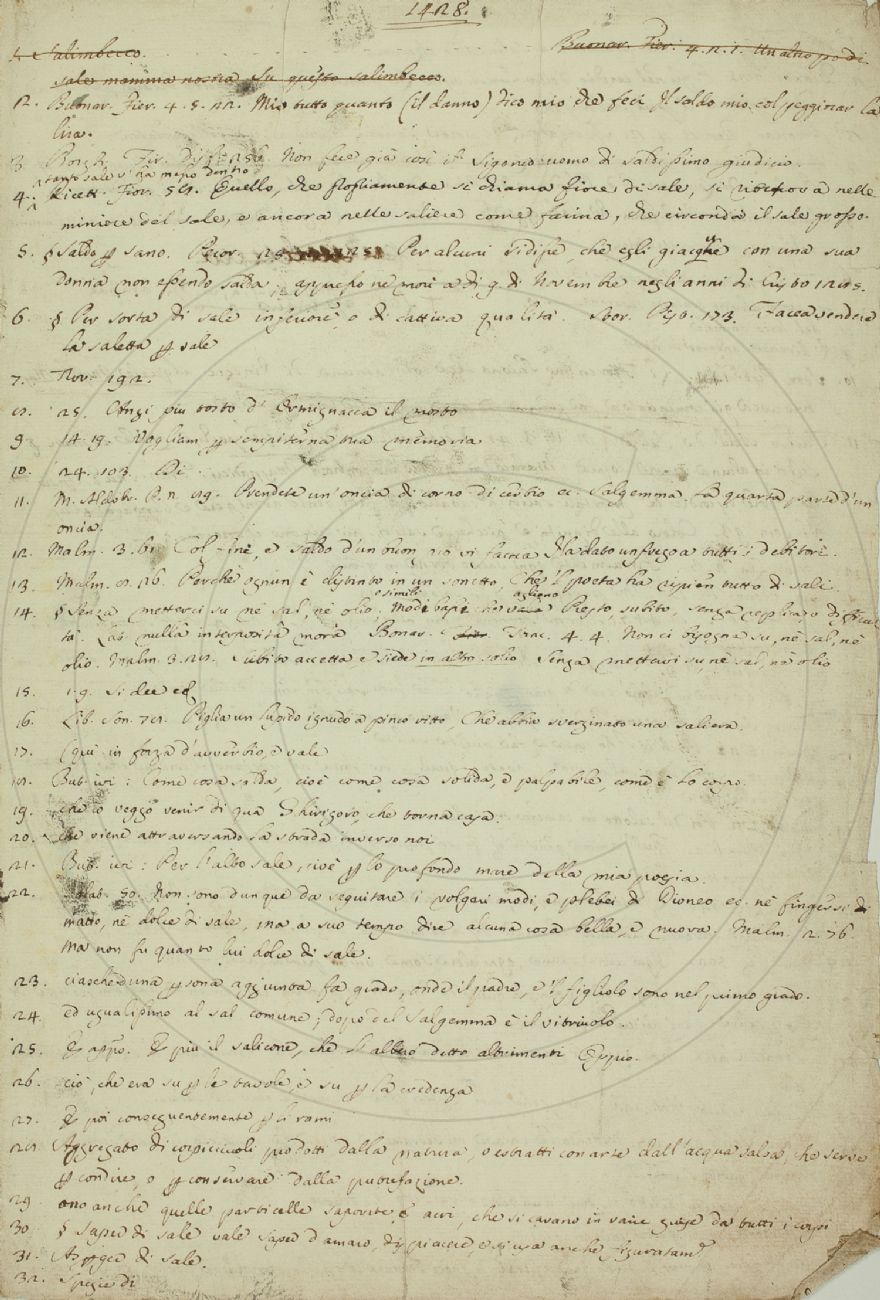 1428.
1. Salimbecco. Buonar. Fier. 4. 2. 1. Un altro po di
sale mamma nostra Su questo salimbecco.
2. Buonar. Fier. 4. 5. 22. Mio tutto quanto (il danno) dico mio che feci Il soldo mio col peggiorar la
lira.
3. Borgh. Non fece già così il Siganoro uomo di saldissimo giudicio.
tanto sale v'ha meno dentro
4. Ricett. Fior. 59. Quello, che stoltamente si chiama fiore di sale, si ritrova nelle
miniere del sale, e ancora nelle saliere come farina, che circonda il sale grosso.
5. § Saldo p sano. Pecor. Per alcuni si disse, che egli giacque con una sua
donna non essendo salda, appresso ne morì a dì 9. di Novembre negli anni di Cristo
6. § Per sorta di sale inferiore, o di cattiva qualità. Stor. Pist. 173. Facea vendere
la saletta p sale
7. Nov. 192.
8. 25. Anzi piu tosto d'Ermignacca il mosto
9. 14. 19. Vogliam p sempiterna tua memoria
10. 24. 103. Di
11. M. Aldobr. P. N. 89. Prendete un'oncia di corno di cerbio ec. Salgemma la quarta parte d'un
oncia.
12. Malm. 3. 61. Col fine, e saldo d'un buon Ha dato un frego a tutti i debitori.
13. Malm. 8. 26. Perchè ognun è distinto in un sonetto, Che 'l poeta ha ripien tutto di sali.
e simili vagliono
14. § Senza metterci su nè sal, nè olio, Modi bassi che vale Presto, subito, senza replica o
tà. Lat. nulla interposita mora Bonar. Tanc. 4. 4. Non ci bisogna su, nè sal, nè
olio. Malm. 3. Subito accetta, e siede in alto solio Senza mettervi su, nè sal, nè olio
15. 1. 9. Si dee
16. Lib. Son. 78. Piglia un ignudo a pinco ritto, Che abbia sverginato una saliera.
17. Qui in forza d'avverbio, e vale
18. But. ivi: Come cosa salda, cioè come cosa solida, e palpabile, come è lo corpo.
19. che io veggo venir di qua Ghirigoro, che torna casa.
20. che viene attraversando la strada inverso noi
21. But. ivi: Per l'alto sale, cioè p lo profondo mare della mia poesia.
22. Galat. 50. Non sono dunque da seguitare i volgari modi, e plebei di Dioneo ec. nè fingersi di
matto, nè dolce di sale, ma a suo tempo dire alcuna cosa bella, e nuova. Malm. 2. 76.
Ma non fu quanto lui dolce di sale.
23. ciascheduna p sona aggiunta fa grado, onde il padre, e 'l figliolo sono nel primo grado.
24. ed ugualissimo al sal comune; dopo del Salgemma è il vitriuolo.
25. E appo. E più il salicone, che è albero detto altrimenti Oppio.
26. ciò, che era su p le tavole, e su p la credenza
27. E poi conseguentemente p li rami
28. Aggregato di corpicciuoli prodotti dalla natura, o estratti con arte dall'acqua salsa, che serve
p condire, o p conservare dalla putrefazione.
29. ono anche quelle particelle saporite, e acri, che si cavano in varie guise da tutti i corpi
30. § Saper di sale vale Saper d'amaro, dispiacere, e si usa anche figuratam
31. Asperger di sale.
32. Spezie di